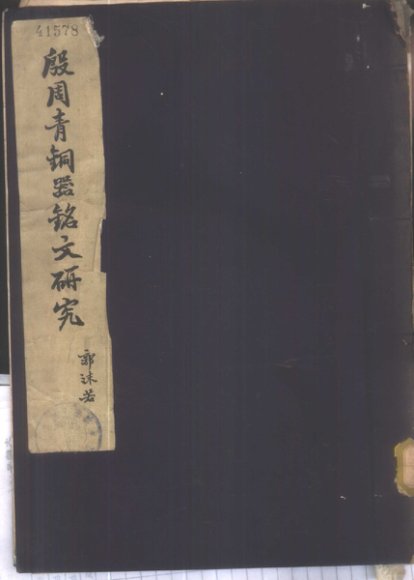 41578
殷周青铜器铭文研究
郭沫若